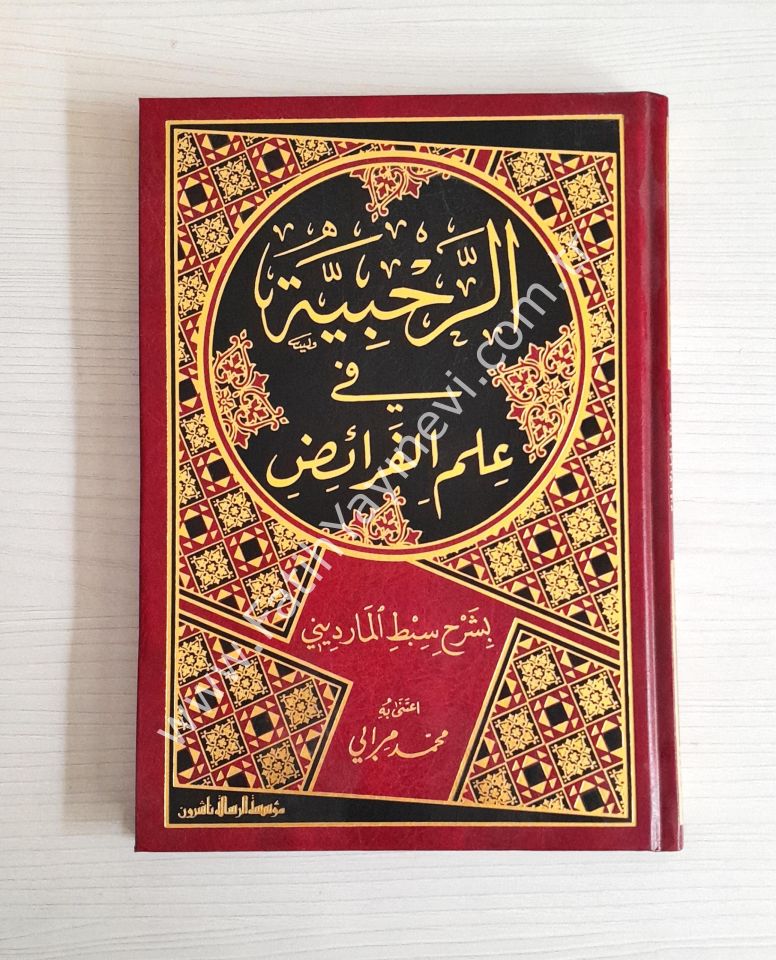 الرَّحْبِيَّة
في
عِلمِ الفَرائضِ
بِشَرْحِ سِبْطِ المَاردِيني
اعتَنَى بُه
محمّد مرابي
مؤسسة الرسالة ناشرون
www.Fatihyayinevi.com.tr